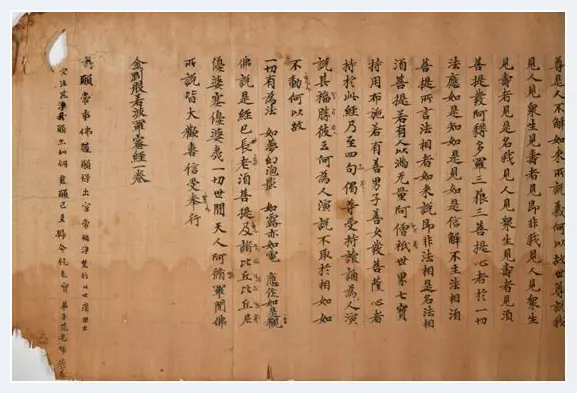 尊是人不解如來所說義何以故世尊說我
見人見衆生見壽者見即非我見人見衆生
見壽者見是名我見人見衆生見壽者見須
菩提發阿耨多羅三藐三菩提心者於一切
法應如是知如是見如是信解不生法相須
菩提所言法相者如來說即非法相是名法相
須菩提若有人以滿无量阿僧祇世界七寶
持用布施若有善男子善女發菩薩心者
持於此經乃至四句偈等受持讀誦為人演
說其福勝彼云何為人演說不取於相如如
不動何以故
一切有為法 如夢幻泡影 如露亦如電 應作如是觀
佛說是經已長老須菩提及諸比丘比丘尼
優婆塞優婆夷一切世間天人阿脩羅聞佛
所說皆大歡喜信受奉行
金剛般若波羅蜜經一卷
願常事佛 願得出家